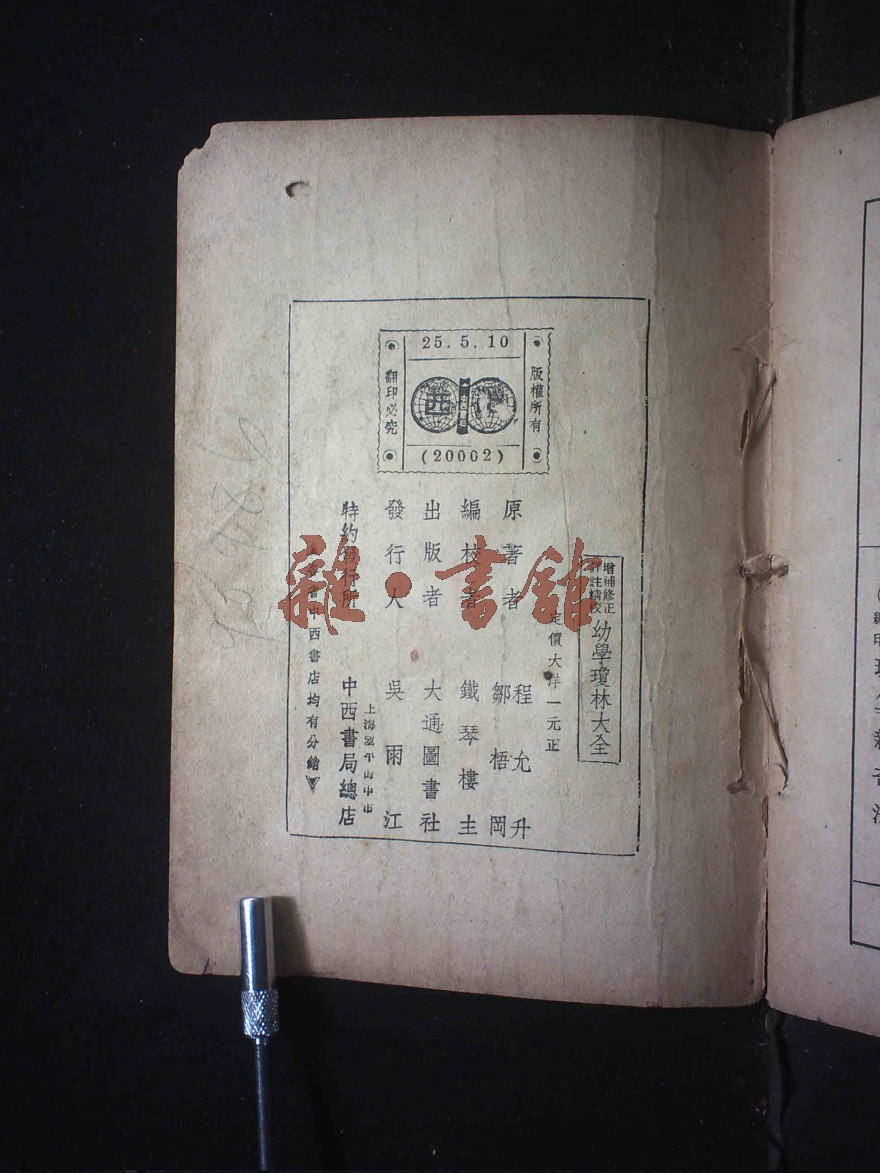 25.5.10
版權所有
翻印必究
西中
(20002)
增補修正
詳註精校
幼學瓊林大全
定價大洋一元正
原著者 程允升 鄒梧岡
編校者 鐵琴樓主
出版者 大通圖書社
發行人 吳雨江
特約發行所 中西書局總店
上海望平街中市
中西書店均有分銷
雜·書館